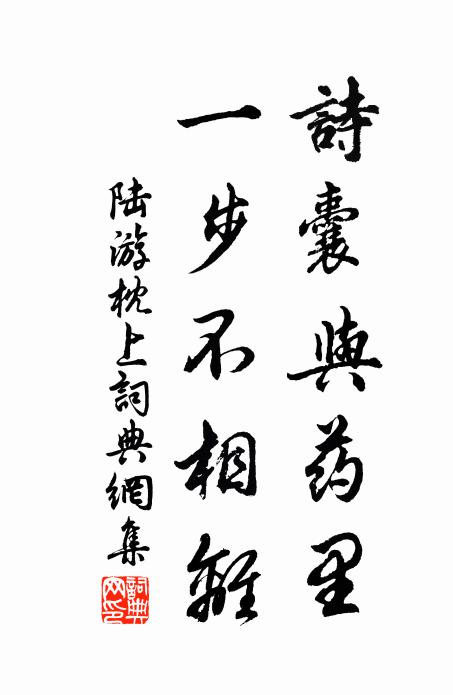 詩囊與药里
一步不相離
陸游枕上詞典網集
詞典网印